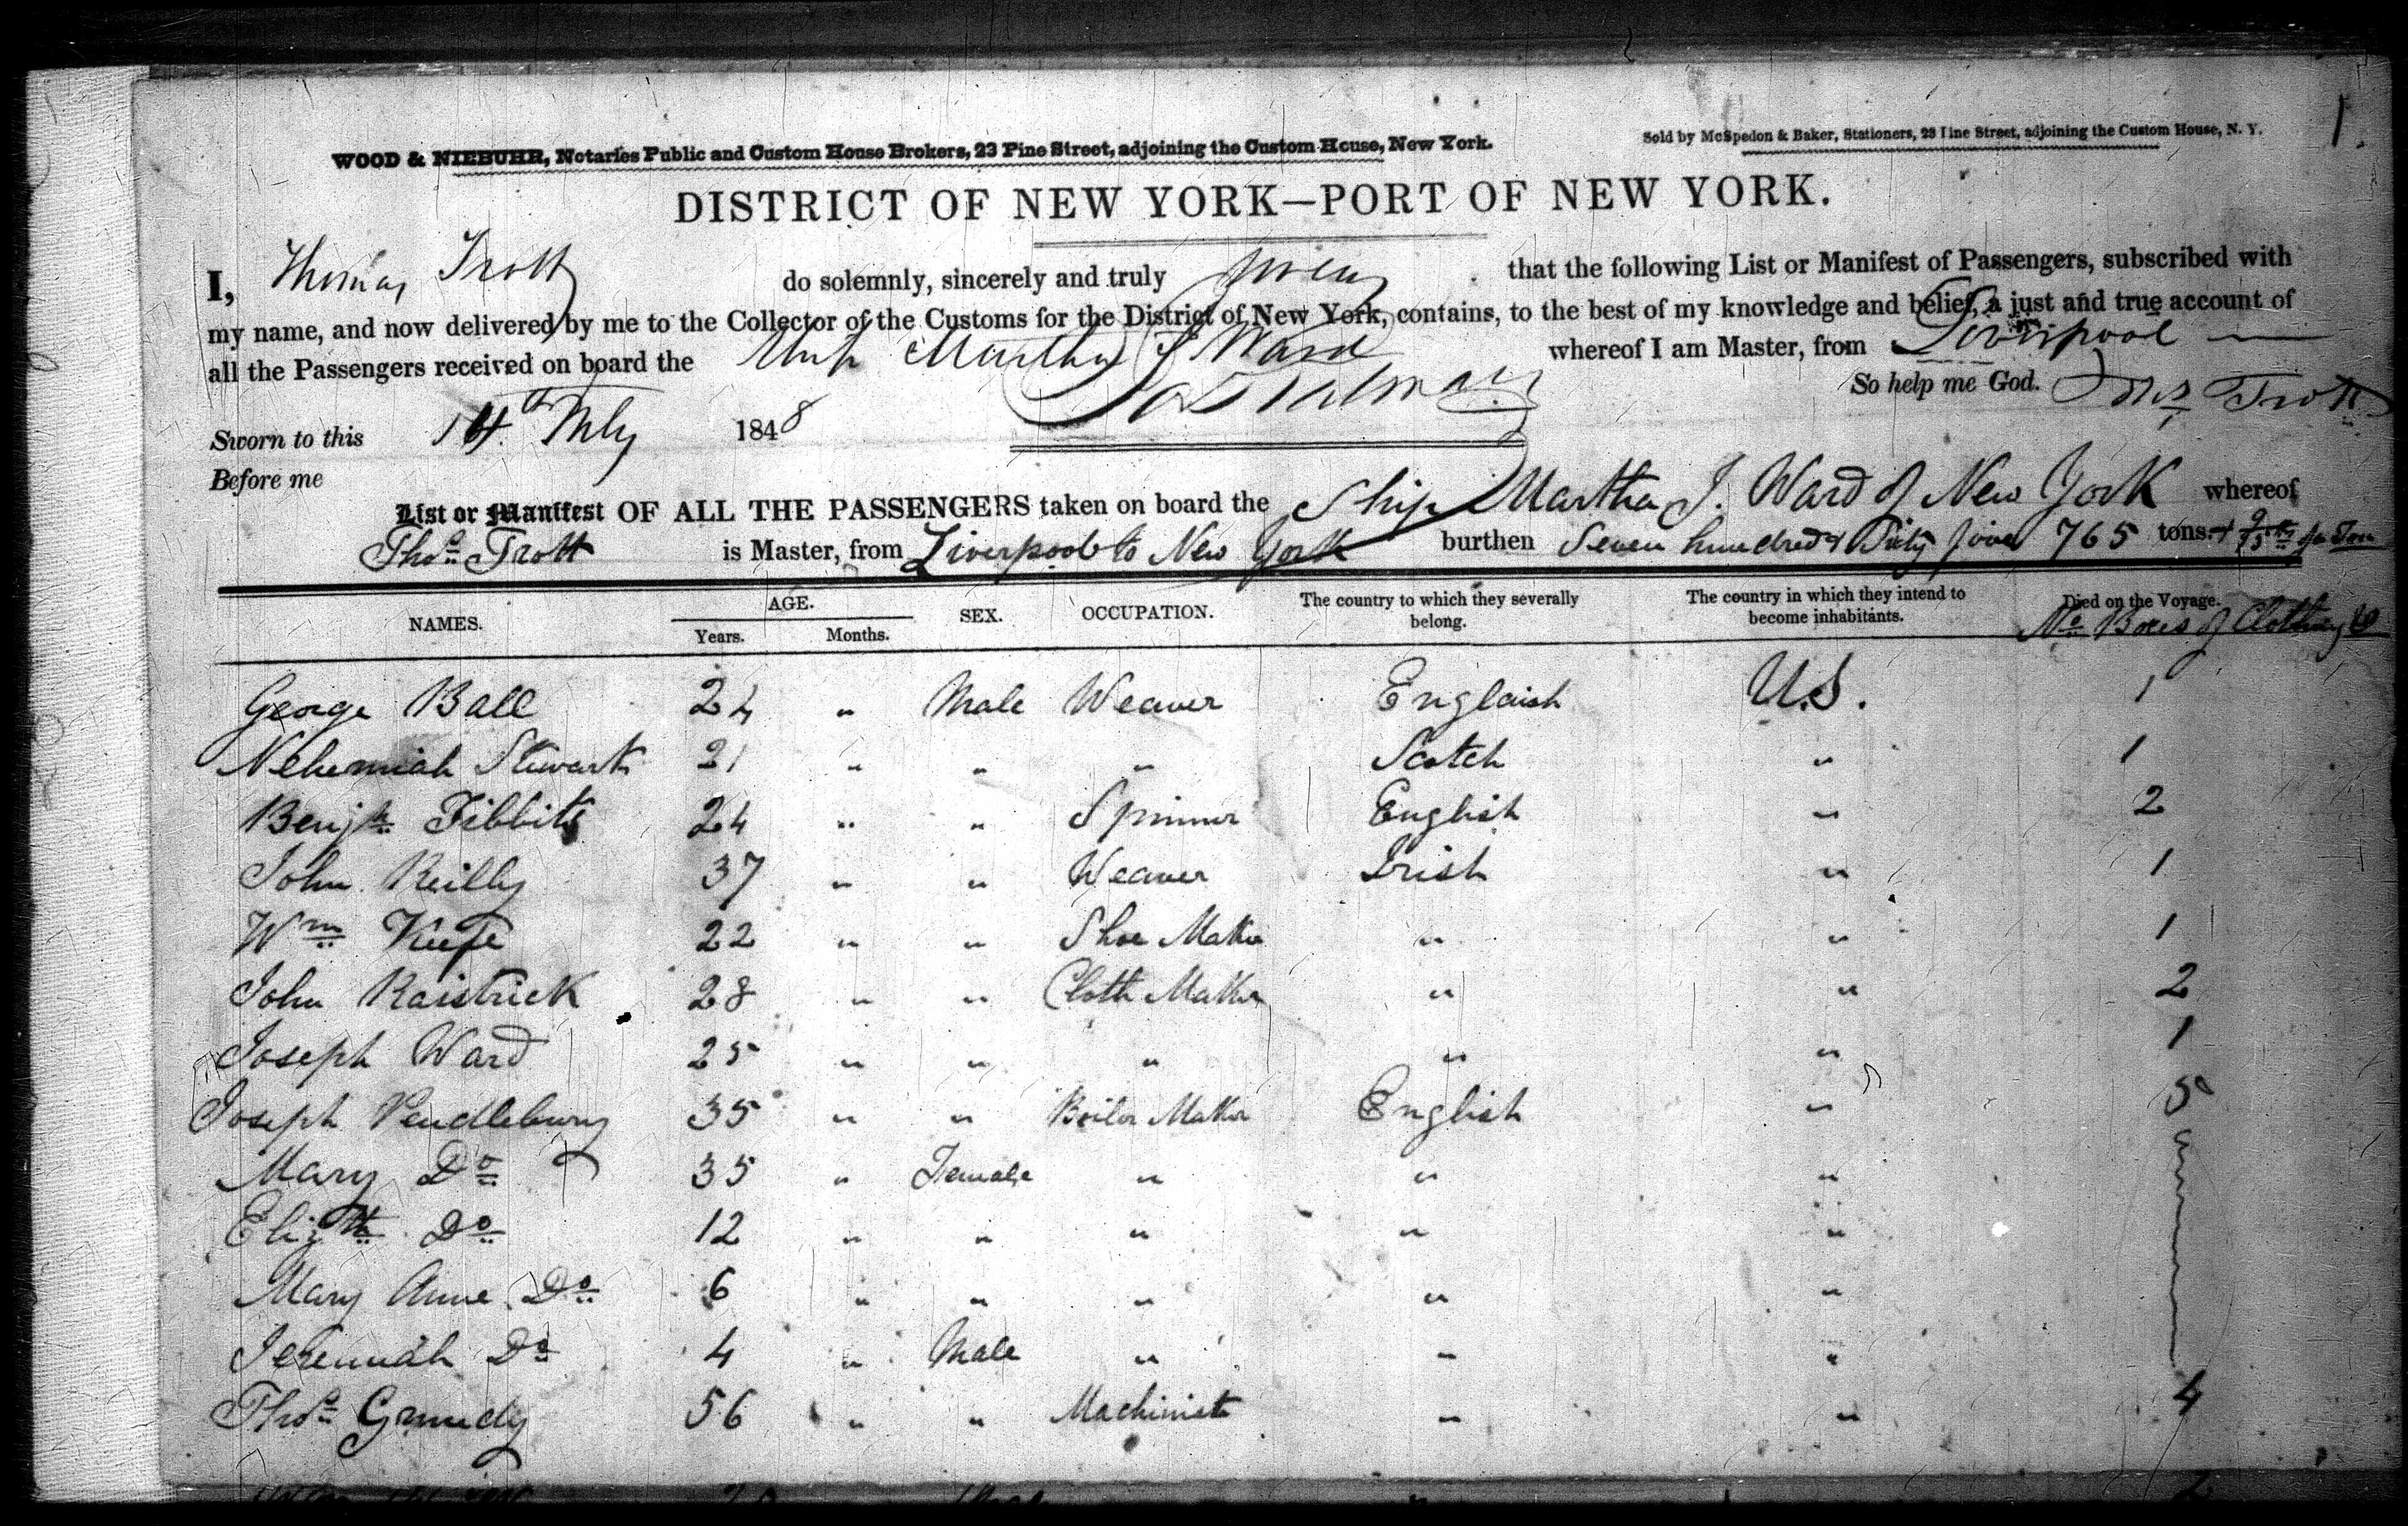 1.
WOOD & NIEBUHR, Notaries Public and Custom House Brokers, 23 Pine Street, adjoining the Custom House, New York.
Sold by McSpedon & Baker, Stationers, 23 Pine Street, adjoining the Custom House, N. Y.
DISTRICT OF NEW YORK—PORT OF NEW YORK.
I, Thomas Trott do solemnly, sincerely and truly swear that the following List or Manifest of Passengers, subscribed with
my name, and now delivered by me to the Collector of the Customs for the District of New York, contains, to the best of my knowledge and belief, a just and true account of
all the Passengers received on board the Ship Martha J Ward whereof I am Master, from Liverpool
So help me God. Thos Trott
Sworn to this 14th July 1848
Before me
List or Manifest OF ALL THE PASSENGERS taken on board the Ship Martha J. Ward of New York whereof
Thos Trott is Master, from Liverpool to New York burthen Seven hundred & Sixty five 765 tons
NAMES. AGE. Years. Months. SEX. OCCUPATION. The country to which they severally belong. The country in which they intend to become inhabitants. Died on the Voyage.
No Boxes of Clothing &
George Ball 24 " Male Weaver Englaish U.S. 1
Nehemiah Stewart 21 " " " Scotch " 1
Benjn Tibbits 24 " " Spinner English " 2
John Reilly 37 " " Weaver Irish " 1
Wm Keefe 22 " " Shoe Maker " " 1
John Raistrick 28 " " Cloth Maker " " 2
Joseph Ward 25 " " " " " 1
Joseph Pendlebury 35 " " Boiler Maker English " 5
Mary Do 35 " Female " " "
Elizth Do 12 " " " " "
Mary Anne Do 6 " " " " "
Jeremiah Do 4 " Male " " "
Thos Grundy 56 " " Machinist " " 4